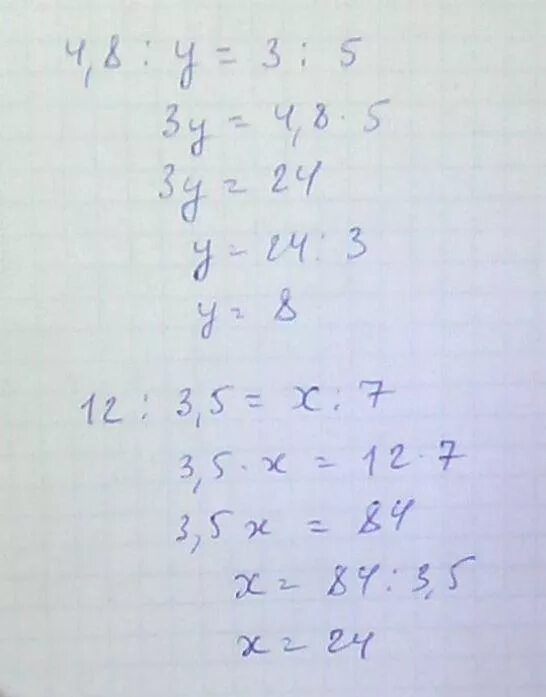 4,8 : y = 3 : 5
3y = 4,8 · 5
3y = 24
y = 24 : 3
y = 8
12 : 3,5 = x : 7
3,5 · x = 12 · 7
3,5x = 84
x = 84 : 3,5
x = 24